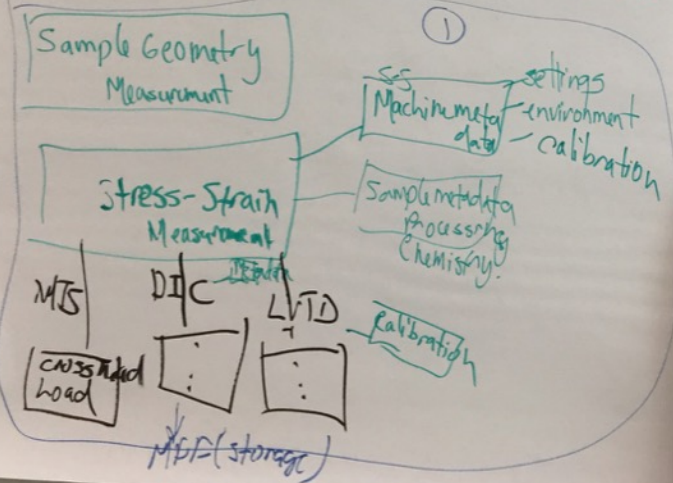 1
Sample Geometry
Measurement
S-S
Machine meta
data
settings
environment
calibration
Stress-Strain
Measurement
Sample metadata
Processing
Chemistry.
MTS
DIC
LVTD
Calibration
Crosshead
Load
(storage)